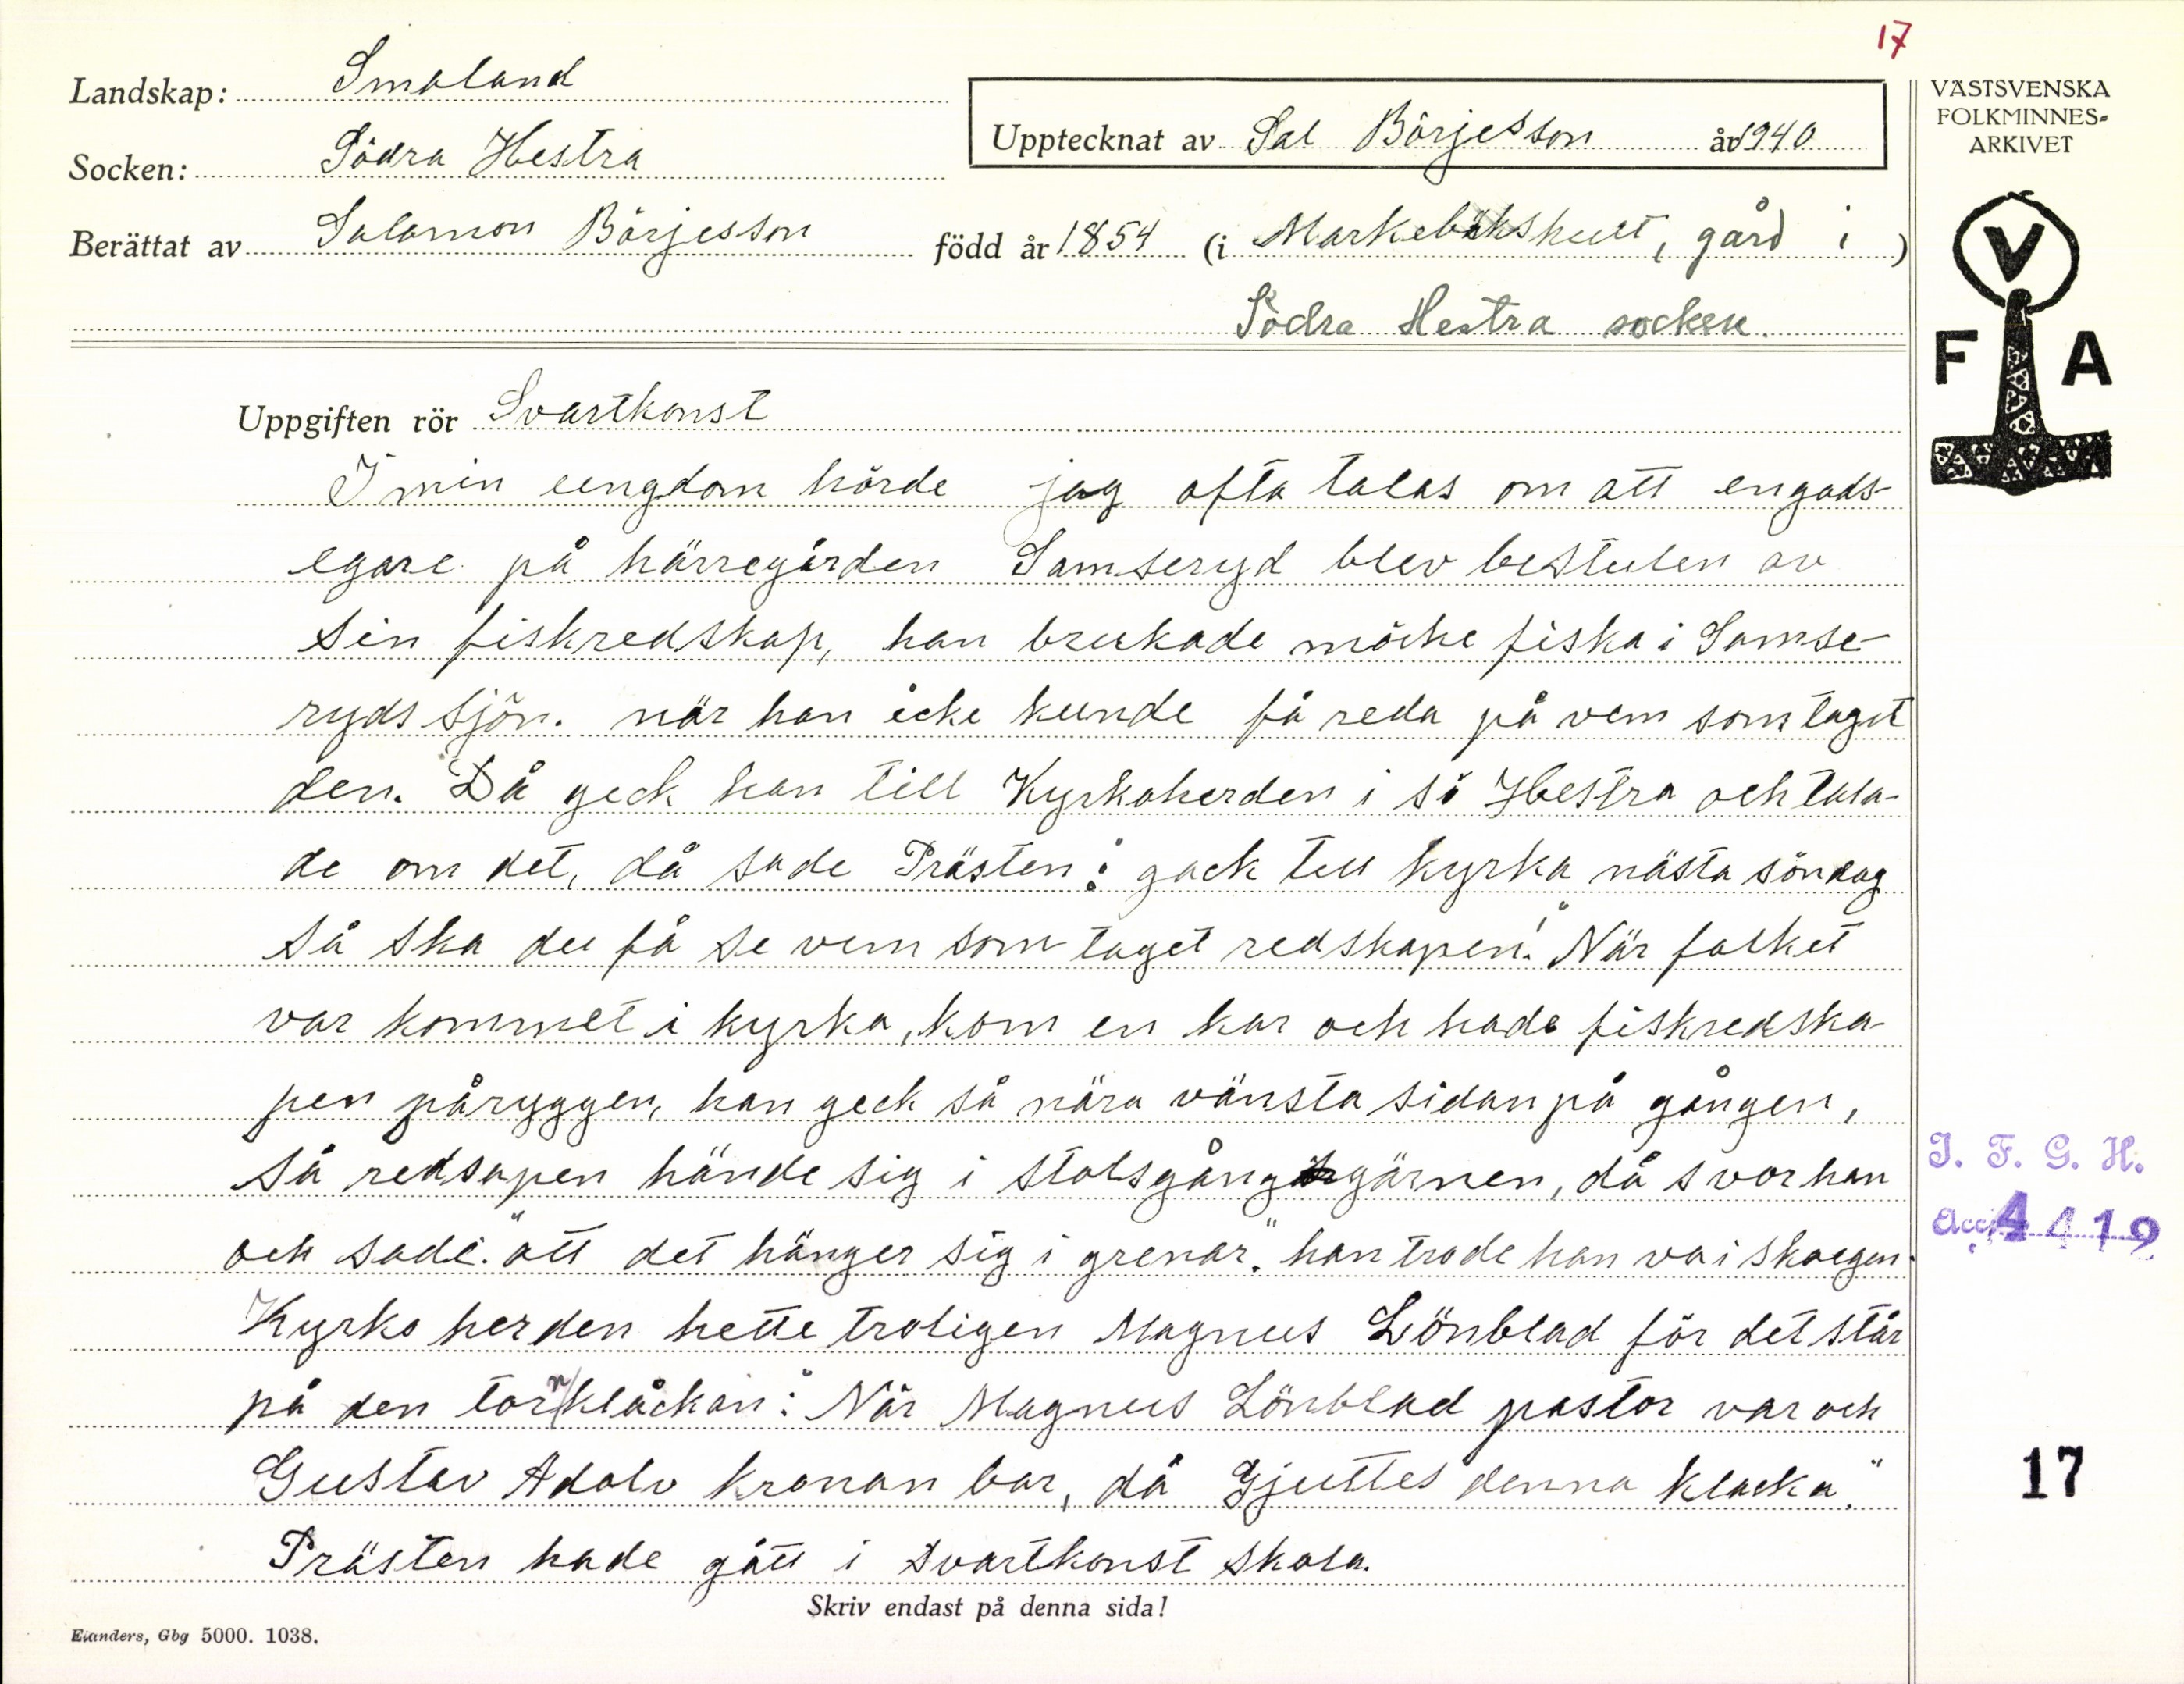 17
Landskap: Småland
Socken: Södra Hestra
Berättat av Salamon Börjesson född år 1854 (i Markebäkshult, gård i)
Södra Hestra socken.
Upptecknat av Sal Börjesson år 1940
VÄSTSVENSKA
FOLKMINNES-
ARKIVET
V
F A
Uppgiften rör Svartkonst
I min ungdom hörde jag ofta talas om att engods-
egare på härregården Samseryd blev bestulen av
sin fiskredskap, han brukade möcke fiska i Samse-
ryds sjön. när han icke kunde få reda på vem som taget
den. Då geck han till Kyrkoherden i sö Hestra och tala-
de om det, då sade Prästen: "gack till kyrka nästa söndag
så ska du få se vem som taget redskapen!" När folket
var kommet i kyrka, kom en kar och hade fiskredska-
pen påryggen, han geck så nära vänsta sidan på gången,
så redsapen hände sig i stolsgånggärnen, då svor han
och sade: "att det hänger sig i grenar." han trode han va i skogen.
Kyrko herden hette troligen Magnus Lönblad för det står
på den tornklåckan: "När Magnus Lönblad pastor var och
Gustav Adolv kronan bar, då Gjuttes denna klacka."
Prästen hade gått i svartkonst skola.
Skriv endast på denna sida!
Elanders, Gbg 5000. 1038.
I. F. G. H.
Acc. 4419
17